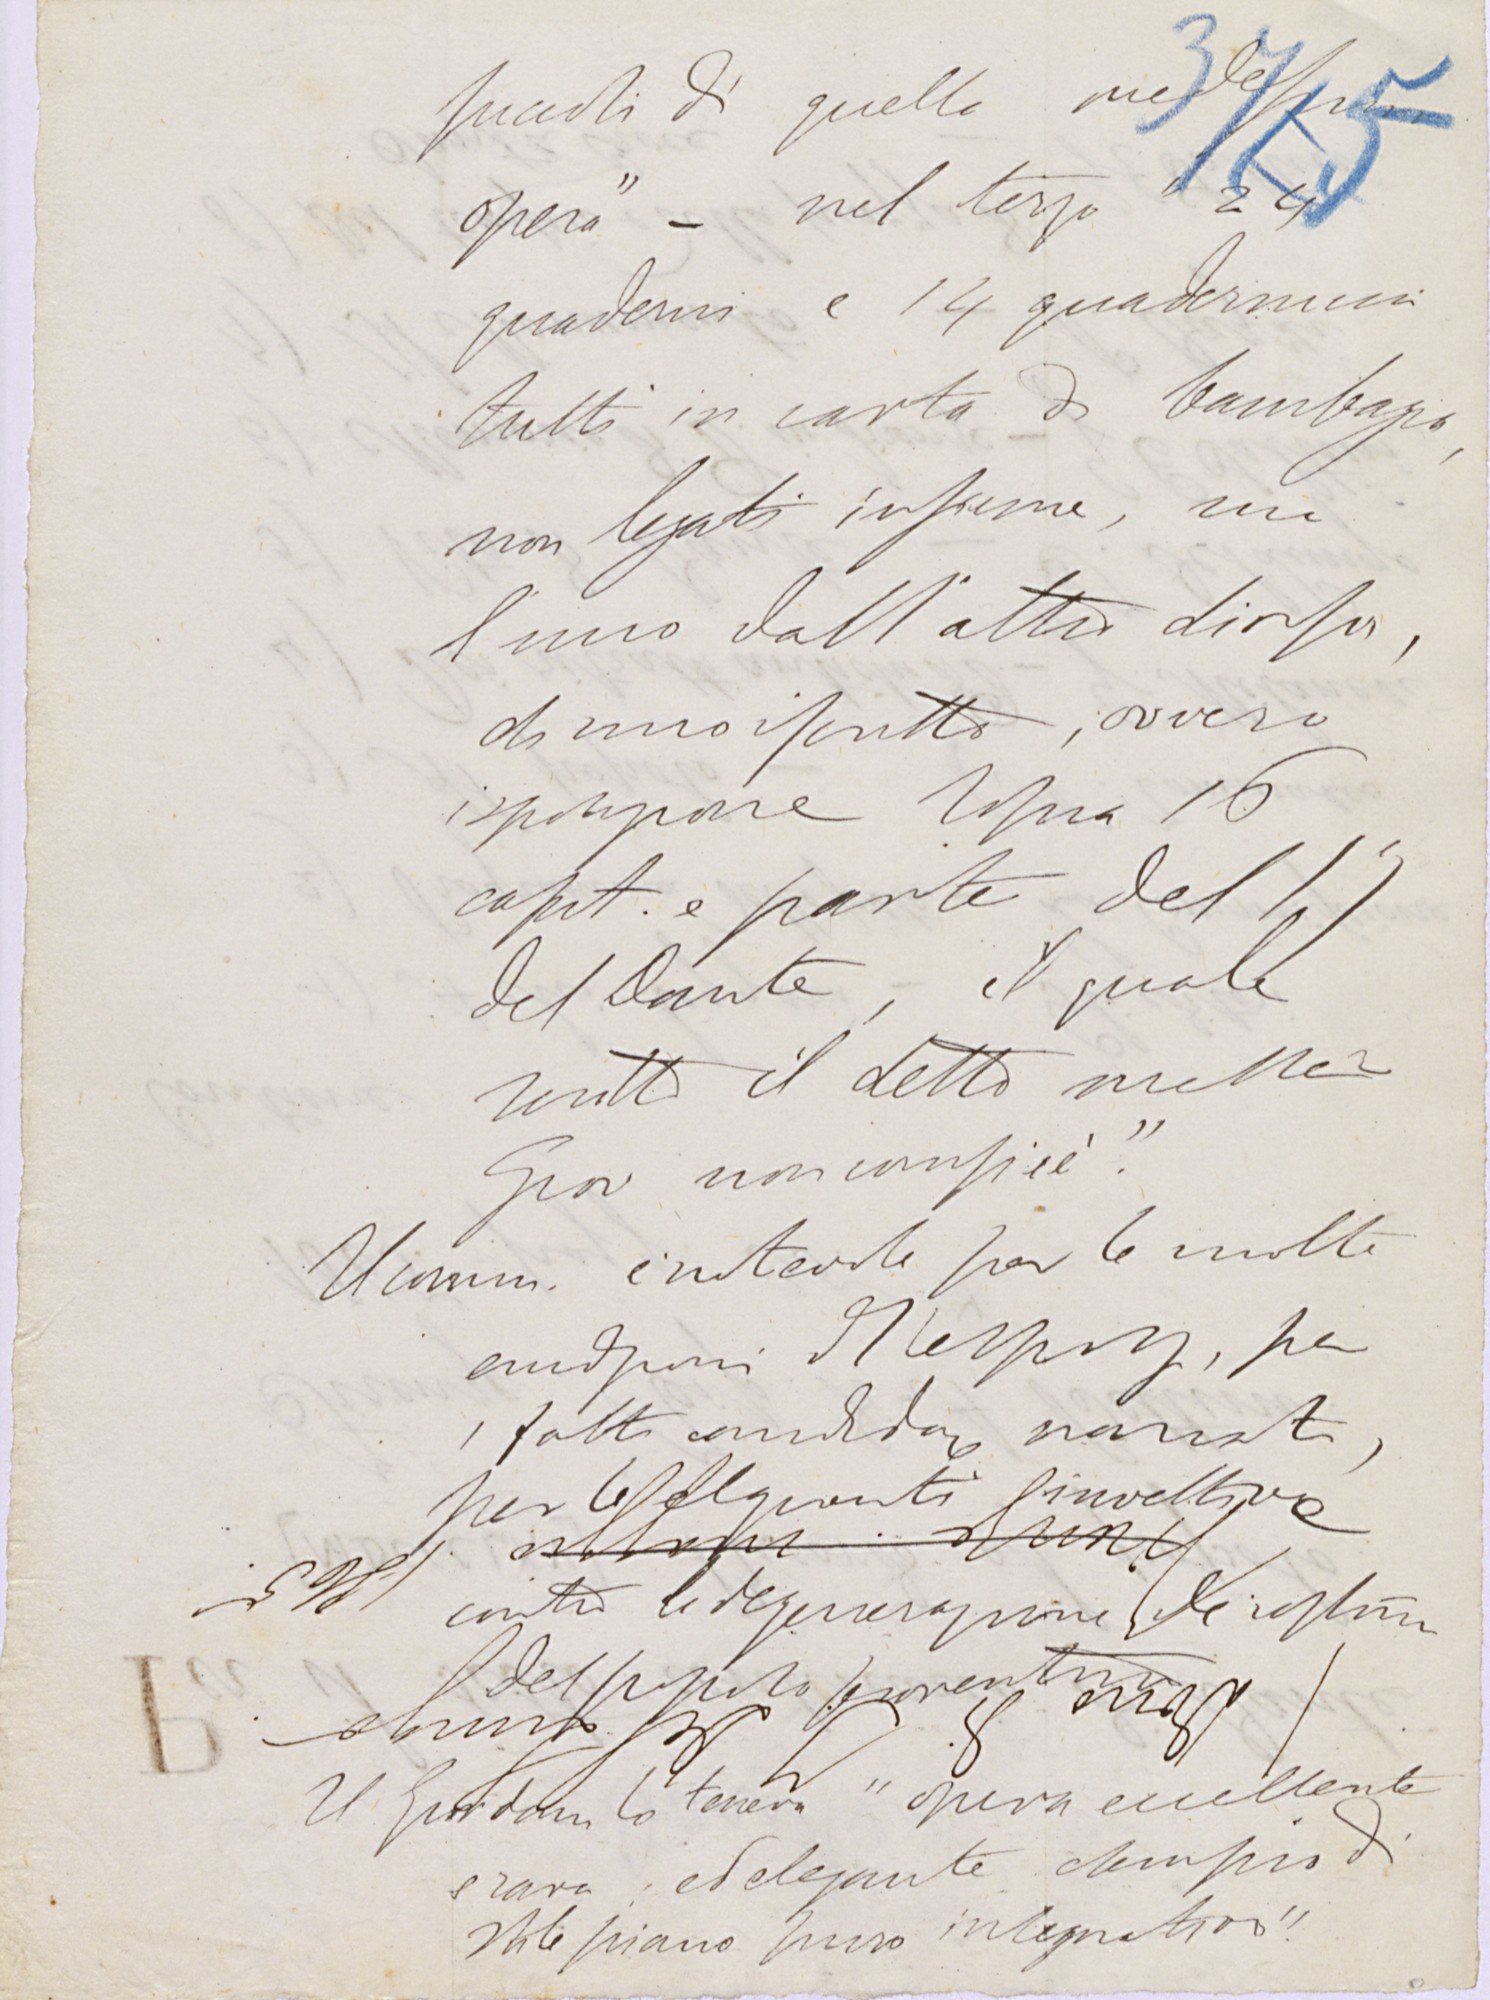 37 15
piccoli di quella medesima
opera" – nel terzo "24
quaderni e 14 quadernucci
tutti in carta di bambagia,
non legati insieme, ma
l'uno dall'altro diviso,
d'uno iscritto, ovvero
isposizione sopra 16
capit. e parte del 17
del Dante, il quale
scritto il detto messer
Giov non compiè".
Il comm. è notevole per le molte
erudizioni per
i fatti narrati,
per le eleganti invettive
contro la degenerazione dei costumi
del popolo fiorentino
Il Giordani lo teneva "opera eccellente
e rara, ed elegante esempio di
stile piano puro integrativo".